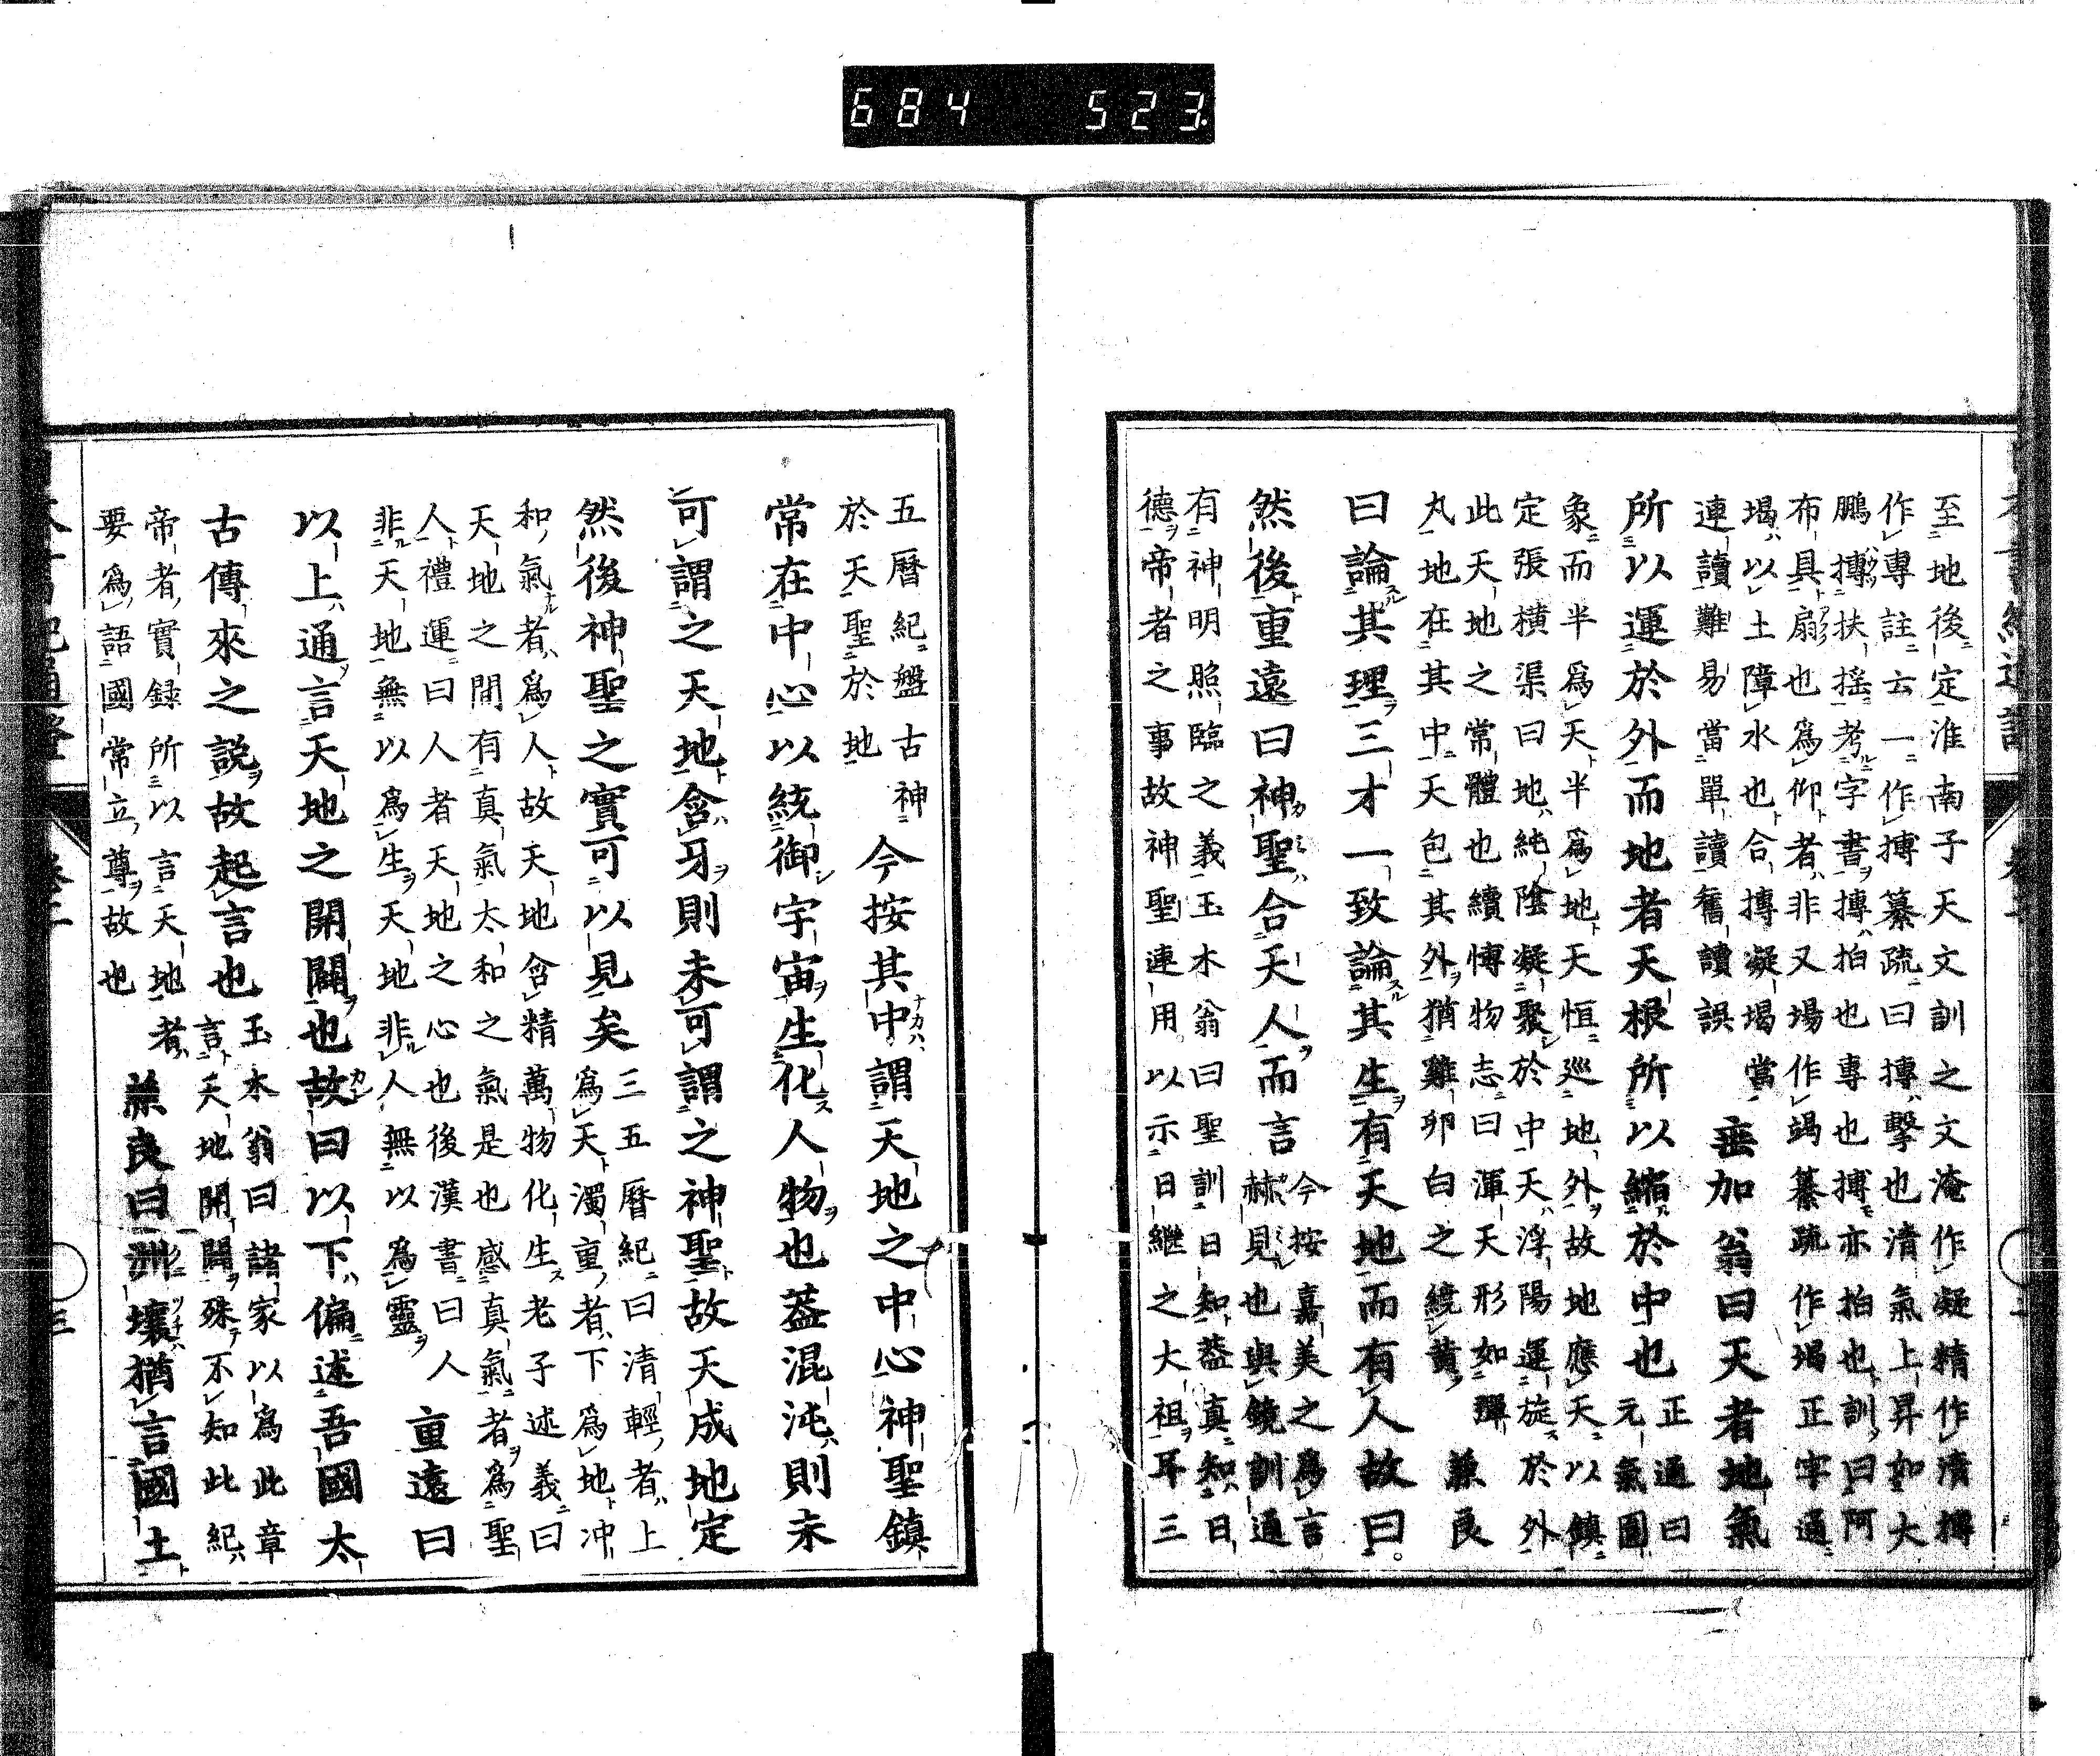 684 523
至地後定淮南子天文訓之文淹作凝精作清摶
作專註云一作摶纂疏曰摶擊也清氣上昇如大
鵬摶扶搖考字書摶拍也專也摶亦拍也訓曰阿
布具扇也爲仰者非又場作竭纂疏作堨正字通
堨以土障水也合摶凝堨當
連讀難易當單讀舊讀誤
垂加翁曰天者地氣
所以運於外而地者天根所以縮於中也
正通曰
元氣圓
象而半爲天半爲地天恒巡地外故地應天以鎮
定張橫渠曰地純陰凝聚於中天浮陽運旋於外
此天地之常體也續博物志曰渾天形如彈
丸地在其中天包其外猶雞卵白之繞黃
兼良
曰論其理三才一致論其生有天地而有人故曰
然後重遠曰神聖合天人而言
今按嘉美之爲言
赫見也與鏡訓通
有神明照臨之義玉木翁曰聖訓日知蓋真知日
德帝者之事故神聖連用以示日繼之大祖耳三
五曆紀盤古神
於天聖於地
今按其中謂天地之中心神聖鎮
常在中心以統御宇宙生化人物也蓋混沌則未
可謂之天地含牙則未可謂之神聖故天成地定
然後神聖之實可以見矣
三五曆紀曰清輕者上
爲天濁重者下爲地冲
和氣者爲人故天地含精萬物化生老子述義曰
天地之間有真氣太和之氣是也感真氣者爲聖
人禮運曰人者天地之心也後漢書曰人
非天地無以爲生天地非人無以爲靈
重遠曰
以上通言天地之開闢也故曰以下偏述吾國太
古傳來之說故起言也
玉木翁曰諸家以爲此章
言天地開闢殊不知此紀
帝者實録所以言天地者
要爲語國常立尊故也
兼良曰洲壤猶言國土